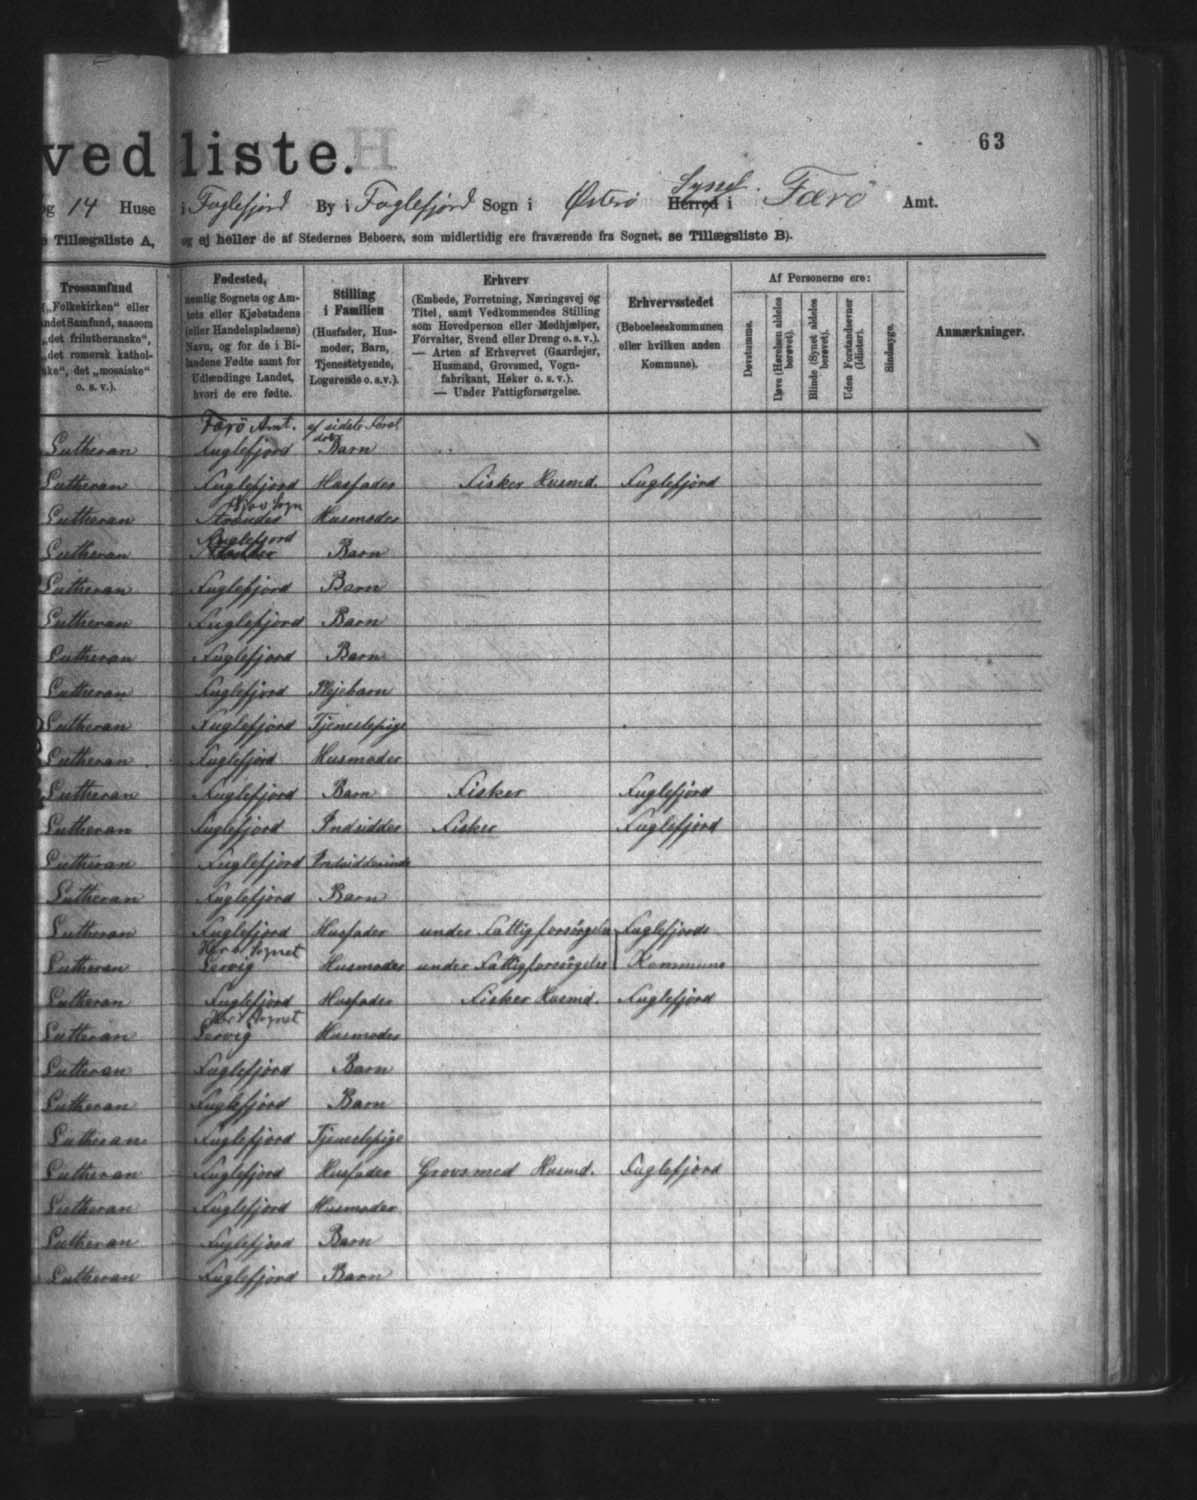 vedliste.
63
og 14 Huse i Fuglefjord By i Fuglefjord Sogn i Østerø Herred Syssel i Færö Amt.
Tillægsliste A, og ej heller de af Stedernes Beboere, som midlertidig ere fraværende fra Sognet, se Tillægsliste B).
Trossamfund
(„Folkekirken“ eller
andet Samfund, saasom
„det frilutheranske“,
„det romersk kathol-
ske“, det „mosaiske“
o. s. v.).
Fødested,
nemlig Sognets og Am-
tets eller Kjøbstadens
(eller Handelspladsens)
Navn, og for de i Bi-
landene Fødte samt for
Udlændinge Landet,
hvori de ere fødte.
Stilling
i Familien
(Husfader, Hus-
moder, Barn,
Tjenestetyende,
Logerende o.s.v.).
Erhverv
(Embede, Forretning, Næringsvej og
Titel, samt Vedkommendes Stilling
som Hovedperson eller Medhjælper,
Forvalter, Svend eller Dreng o. s. v.).
— Arten af Erhvervet (Gaardejer,
Husmand, Grovsmed, Vogn-
fabrikant, Høker o. s. v.).
— Under Fattigforsørgelse.
Erhvervsstedet
(Beboelseskommunen
eller hvilken anden
Kommune).
Af Personerne ere:
Døvstumme.
Døve (Hørelsen aldeles
berøvet).
Blinde (Synet aldeles
berøvet).
Uden Forstandsevner
(Idioter).
Sindssyge.
Anmærkninger.
Færö Amt. af sidste
Lutheran Fuglefjord Barn
Lutheran Fuglefjord Husfader Fisker Husmd. Fuglefjord
Sogn
Lutheran Strander Husmoder
Fuglefjord
Lutheran Strander Barn
Lutheran Fuglefjord Barn
Lutheran Fuglefjord Barn
Lutheran Fuglefjord Barn
Lutheran Fuglefjord Plejebarn
Lutheran Fuglefjord Tjenestepige
Lutheran Fuglefjord Husmoder
Lutheran Fuglefjord Barn Fisker Fuglefjord
Lutheran Fuglefjord Indsidder Fisker Fuglefjord
Lutheran Fuglefjord Indsidderinde
Lutheran Fuglefjord Barn
Lutheran Fuglefjord Husfader under Fattigforsörgelse Fuglefjords
Sognet
Lutheran Lervig Husmoder under Fattigforsörgelse Kommune
Lutheran Fuglefjord Husfader Fisker Husmd. Fuglefjord
Sognet
Lutheran Lervig Husmoder
Lutheran Fuglefjord Barn
Lutheran Fuglefjord Barn
Lutheran Fuglefjord Tjenestepige
Lutheran Fuglefjord Husfader Grovsmed Husmd. Fuglefjord
Lutheran Fuglefjord Husmoder
Lutheran Fuglefjord Barn
Lutheran Fuglefjord Barn